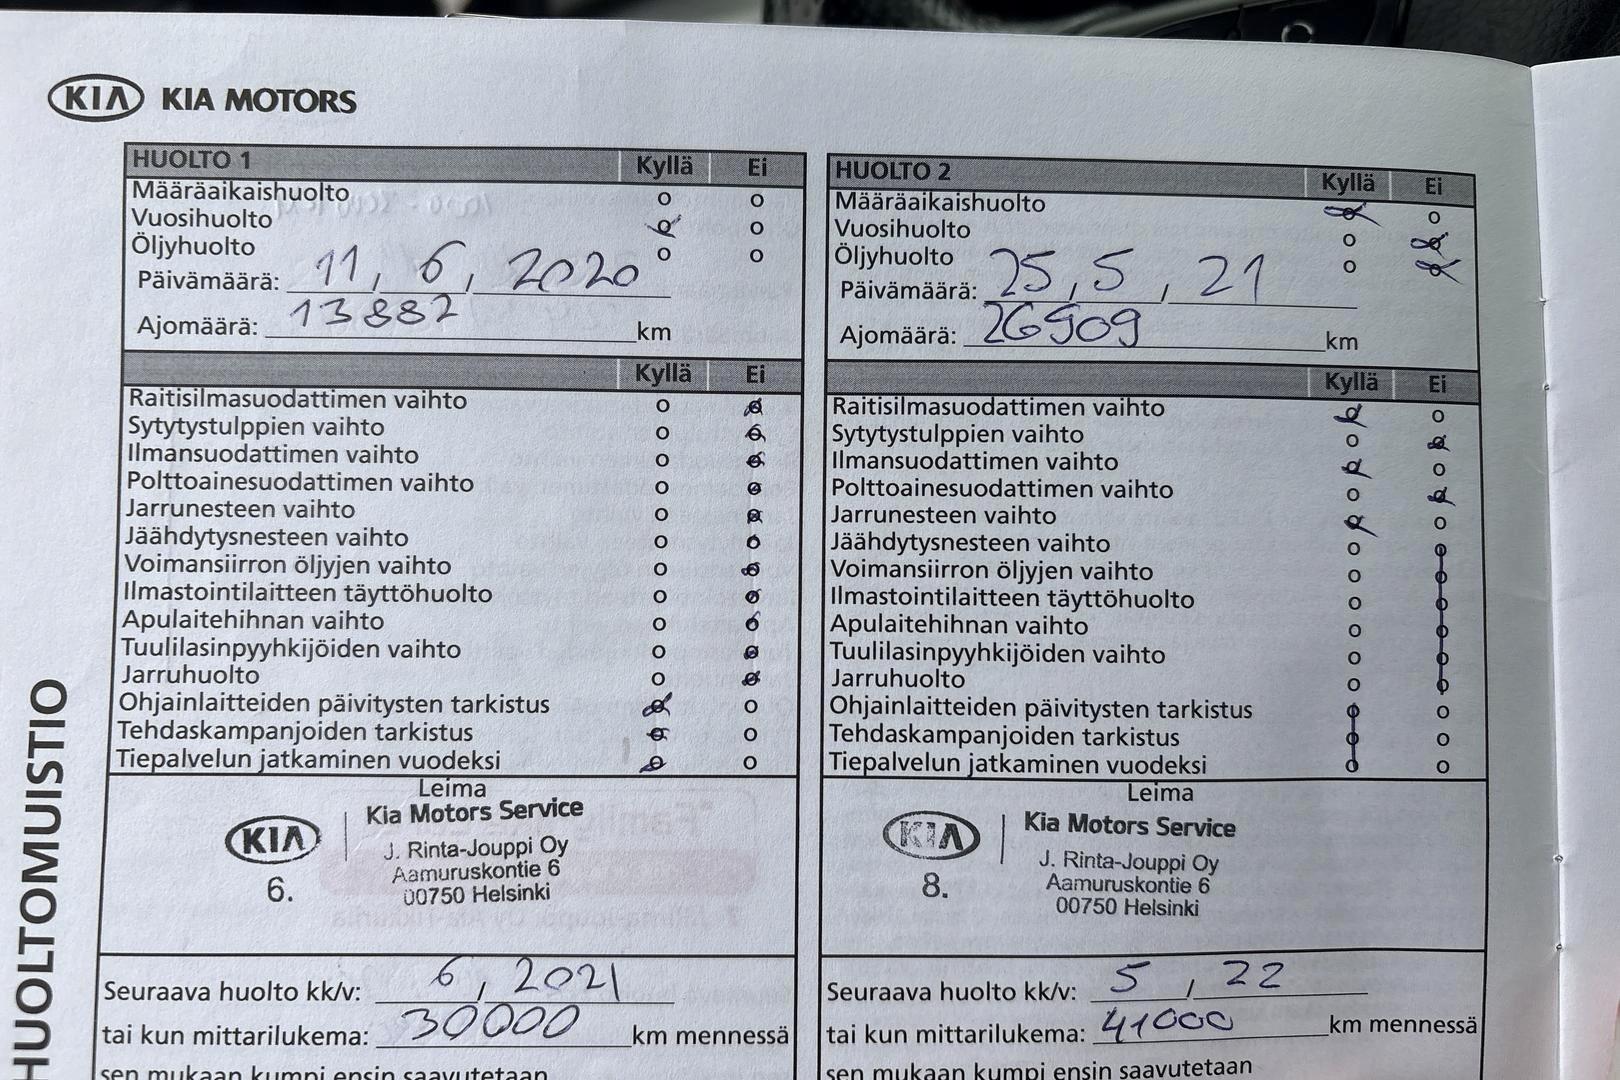 KIA KIA MOTORS
HUOLTOMUISTIO
HUOLTO 1 Kyllä Ei
Määräaikaishuolto o o
Vuosihuolto o o
Öljyhuolto o o
Päivämäärä: 11, 6, 2020
Ajomäärä: 13882 km
Kyllä Ei
Raitisilmasuodattimen vaihto o o
Sytytystulppien vaihto o o
Ilmansuodattimen vaihto o o
Polttoainesuodattimen vaihto o o
Jarrunesteen vaihto o o
Jäähdytysnesteen vaihto o o
Voimansiirron öljyjen vaihto o o
Ilmastointilaitteen täyttöhuolto o o
Apulaitehihnan vaihto o o
Tuulilasinpyyhkijöiden vaihto o o
Jarruhuolto o o
Ohjainlaitteiden päivitysten tarkistus o o
Tehdaskampanjoiden tarkistus o o
Tiepalvelun jatkaminen vuodeksi o o
Leima
KIA Kia Motors Service
J. Rinta-Jouppi Oy
Aamuruskontie 6
6. 00750 Helsinki
Seuraava huolto kk/v: 6, 2021
tai kun mittarilukema: 30000 km mennessä
sen mukaan kumpi ensin saavutetaan
HUOLTO 2 Kyllä Ei
Määräaikaishuolto o o
Vuosihuolto o o
Öljyhuolto o o
Päivämäärä: 25, 5, 21
Ajomäärä: 26909 km
Kyllä Ei
Raitisilmasuodattimen vaihto o o
Sytytystulppien vaihto o o
Ilmansuodattimen vaihto o o
Polttoainesuodattimen vaihto o o
Jarrunesteen vaihto o o
Jäähdytysnesteen vaihto o o
Voimansiirron öljyjen vaihto o o
Ilmastointilaitteen täyttöhuolto o o
Apulaitehihnan vaihto o o
Tuulilasinpyyhkijöiden vaihto o o
Jarruhuolto o o
Ohjainlaitteiden päivitysten tarkistus o o
Tehdaskampanjoiden tarkistus o o
Tiepalvelun jatkaminen vuodeksi o o
Leima
KIA Kia Motors Service
J. Rinta-Jouppi Oy
8. Aamuruskontie 6
00750 Helsinki
Seuraava huolto kk/v: 5, 22
tai kun mittarilukema: 41000 km mennessä
sen mukaan kumpi ensin saavutetaan